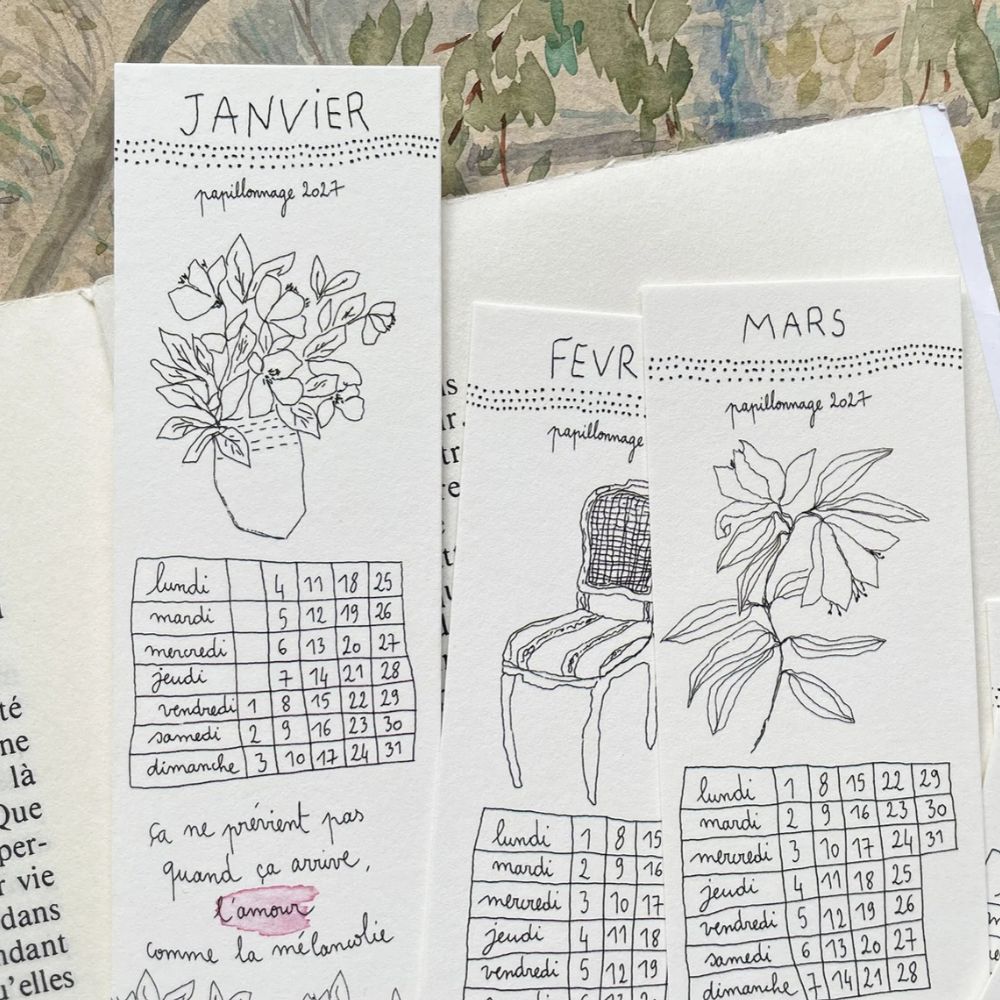 JANVIER
papillonnage 2027
lundi 4 11 18 25
mardi 5 12 19 26
mercredi 6 13 20 27
jeudi 7 14 21 28
vendredi 1 8 15 22 29
samedi 2 9 16 23 30
dimanche 3 10 17 24 31
ça ne prévient pas
quand ça arrive,
l'amour
comme la mélancolie
FEVR
papillonnage
lundi 1 8 15
mardi 2 9 16
mercredi 3 10 17
jeudi 4 11 18
vendredi 5 12 19
MARS
papillonnage 2027
lundi 1 8 15 22 29
mardi 2 9 16 23 30
mercredi 3 10 17 24 31
jeudi 4 11 18 25
vendredi 5 12 19 26
samedi 6 13 20 27
dimanche 7 14 21 28
té
ne
là
Que
per-
r vie
dans
ndant
u'elles